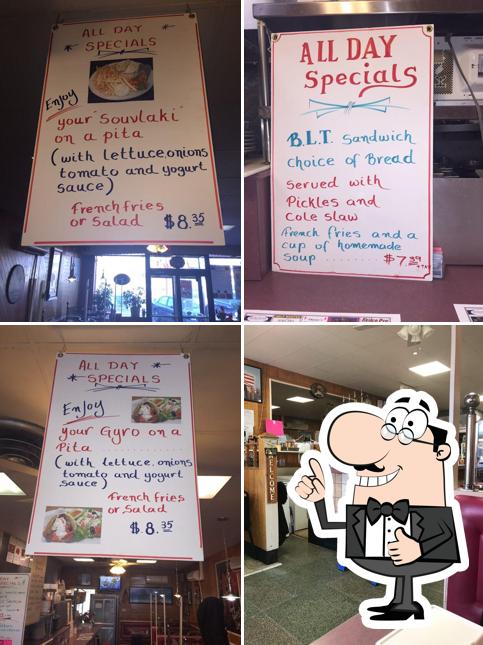 ALL DAY
SPECIALS
Enjoy
your "Souvlaki"
on a pita
(with lettuce, onions
tomato and yogurt
sauce)
French fries
or Salad $8.35
ALL DAY
Specials
B.L.T. Sandwich
choice of Bread
served with
Pickles and
Cole slaw
french fries and a
cup of homemade
soup ........ $7.39
+TAX
ALL DAY
SPECIALS
Enjoy
your Gyro on a
Pita ............
(with lettuce, onions
tomato and yogurt
sauce)
French fries
or Salad
$8.35
WELCOME